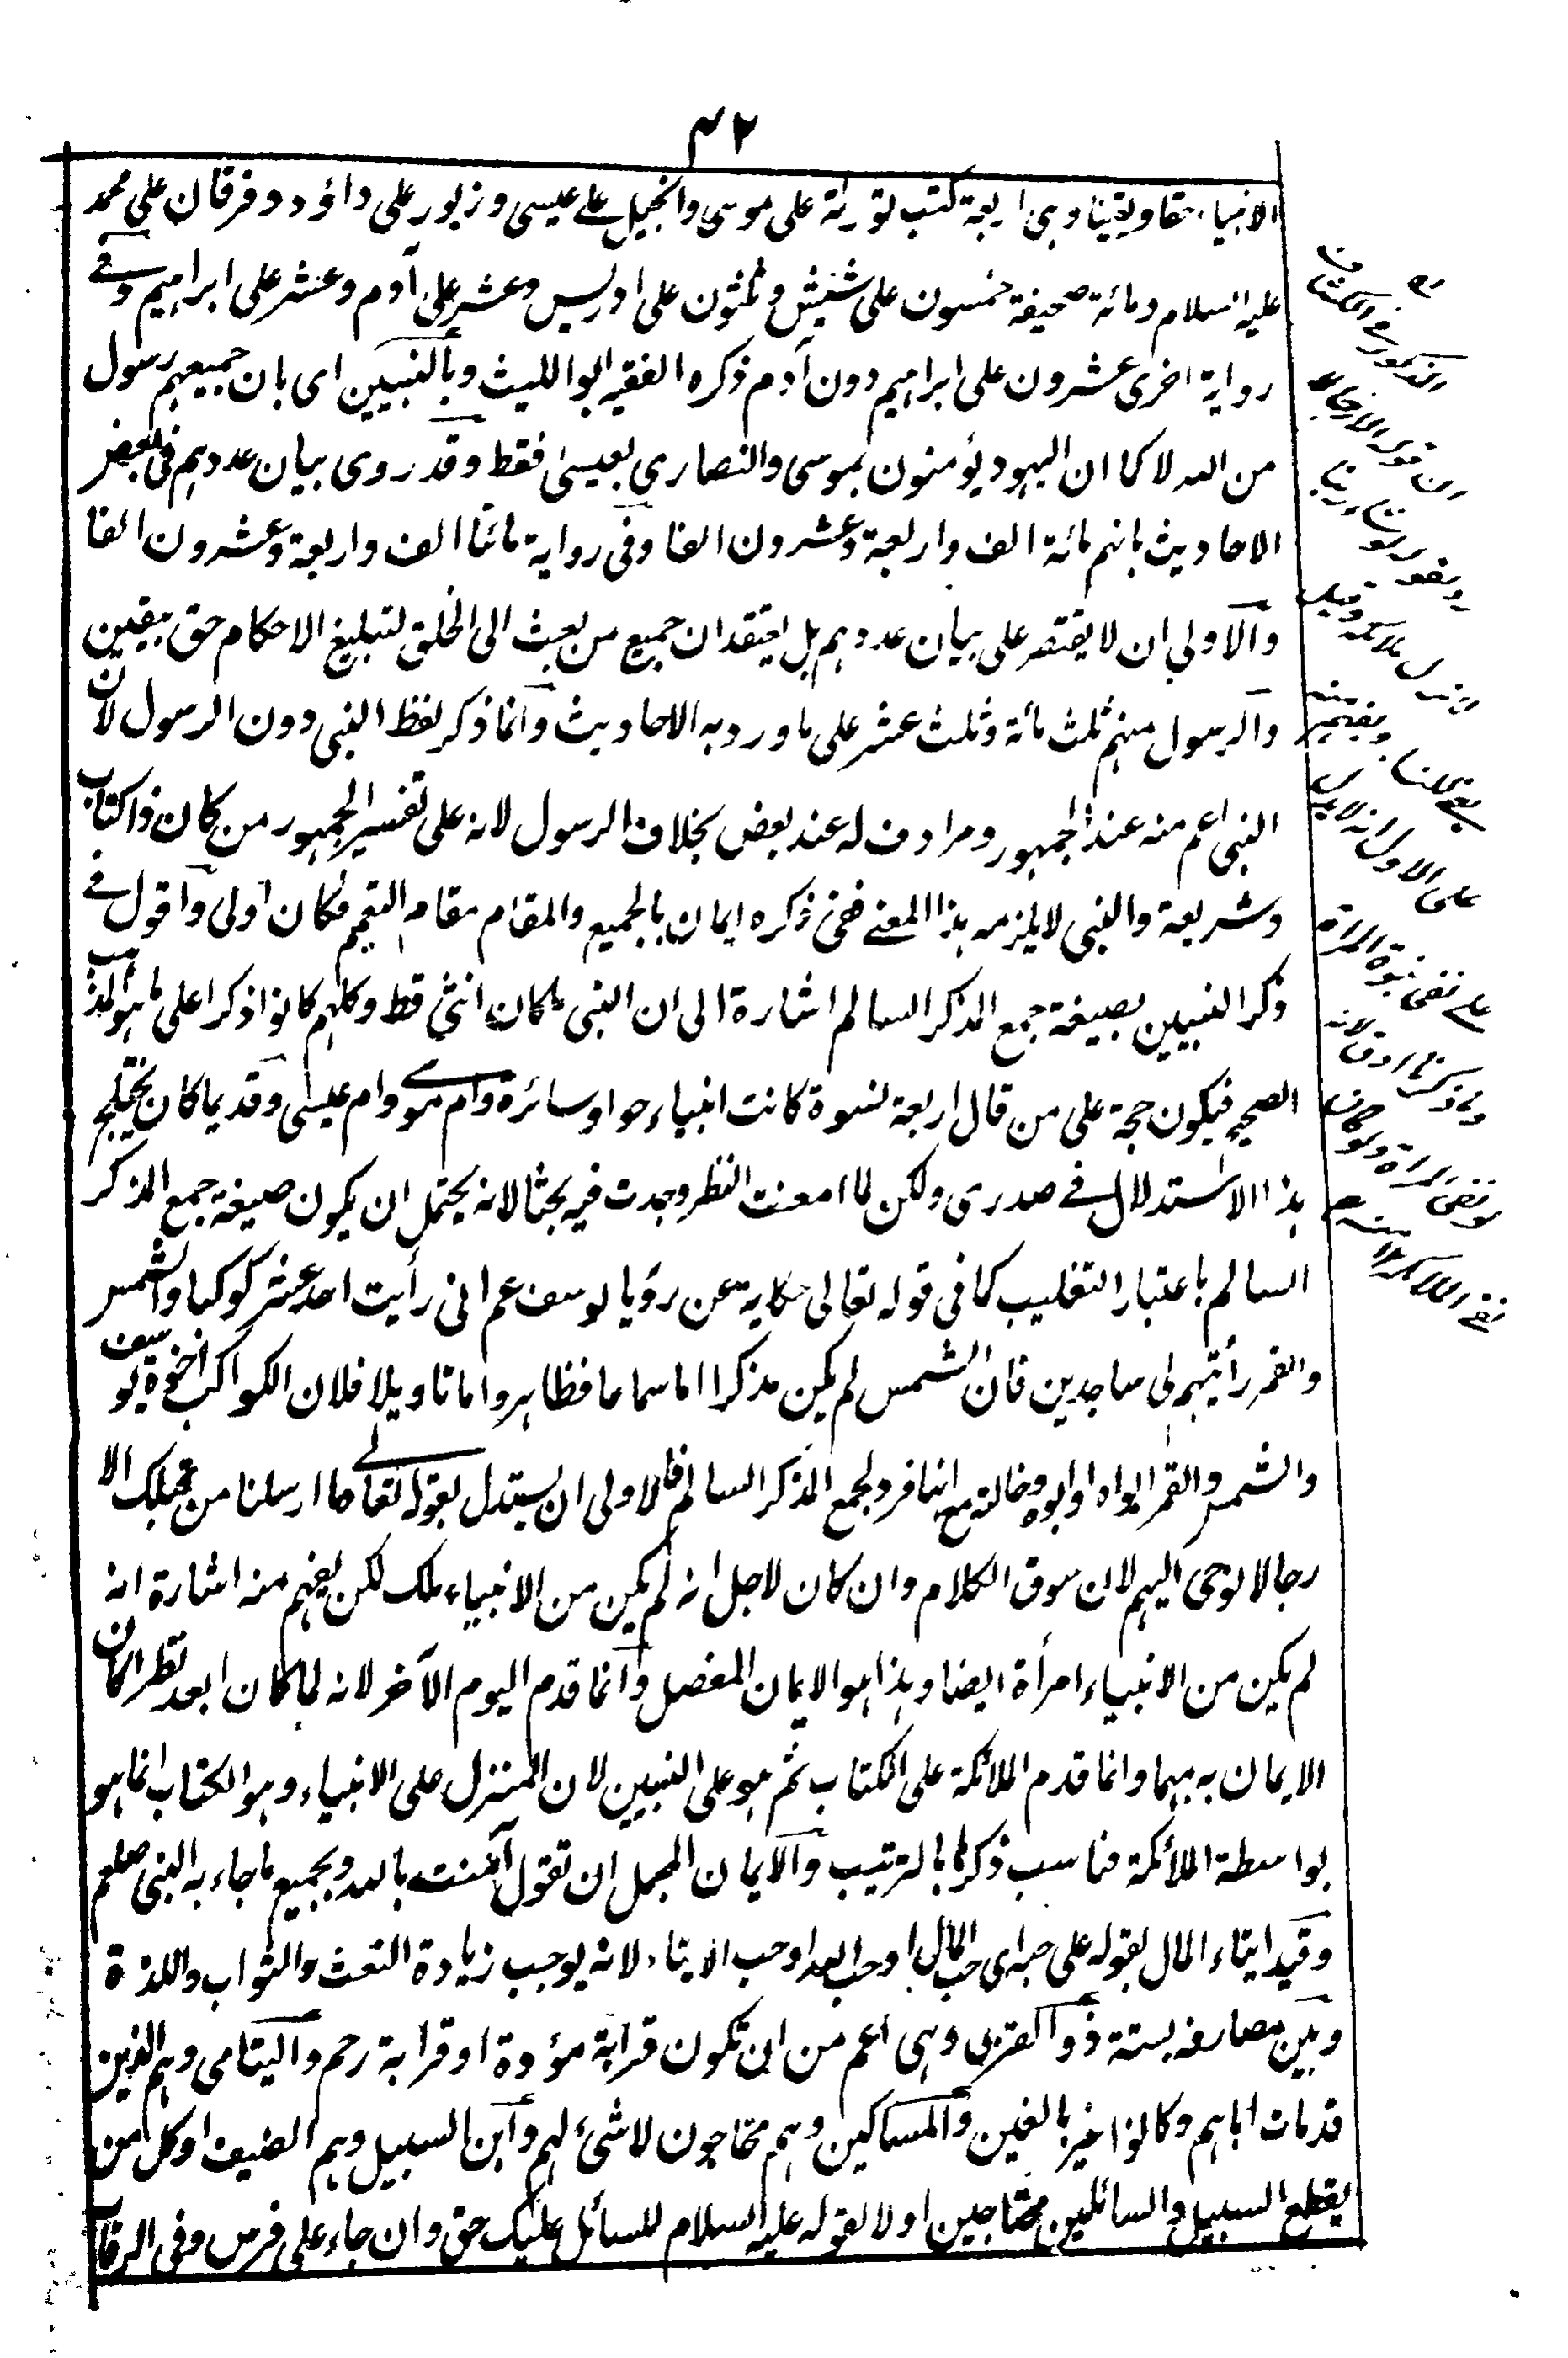 ٤٢
الانبياء حقا ويقينا وهى اربعة كتب تورىة على موسى وانجيل على عيسى وزبور على داؤد وفرقان على محمد
عليه السلام ومائة صحيفة خمسون على شيش وثلثون على ادريس وعشر على آدم وعشر على ابراهيم وفى
رواية اخرى عشرون على ابراهيم دون آدم ذكره الفقيه ابو الليث وبالنبيين اى بان جميعهم رسول
من الله لا كما ان اليهود يؤمنون بموسى والنصارى بعيسى فقط وقد روى بيان عددهم فى بعض
الاحاديث بانهم مائة الف واربعة وعشرون الفا وفى رواية مائتا الف واربعة وعشرون الفا
والاولى ان لا يقتصر على بيان عددهم بل يعتقد ان جميع من بعث الى الخلق لتبليغ الاحكام حق بيقين
والرسول منهم ثلث مائة وثلث عشر على ما ورد به الاحاديث وانما ذكر لفظ النبى دون الرسول لان
النبى اعم منه عند الجمهور ومرادف له عند بعض بخلاف الرسول لانه على تفسير الجمهور من كان ذا كتاب
وشريعة والنبى لا يلزمه هذا المعنى ففى ذكره ايمان بالجميع والمقام مقام التعميم فكان اولى واقول فى
ذكر النبيين بصيغة جمع المذكر السالم اشارة الى ان النبى ما كان انثى قط وكلهم كانوا ذكرا على ما هو المذهب
الصحيح فيكون حجة على من قال اربعة نسوة كانت انبياء حوا وسائرة وام موسى وام عيسى وقد يما كان يختلج
هذا الاستدلال فى صدرى ولكن لما امعنت النظر وجدت فيه بحثا لانه يحتمل ان يكون صيغة جمع المذكر
السالم باعتبار التغليب كما فى قوله تعالى حكاية عن رؤيا يوسف عم انى رأيت احد عشر كوكبا والشمس
والقمر رأيتهم لى ساجدين فان الشمس لم يكن مذكرا اما سماعا فظاهر واما تاويلا فلان الكواكب اخوة يوسف
والشمس والقمر ابواه او ابوه وخالته مع انها فرد لجمع المذكر السالم فالاولى ان يستدل بقوله تعالى وما ارسلنا من قبلك الا
رجالا نوحى اليهم لان سوق الكلام وان كان لاجل انه لم يكن من الانبياء ملك لكن يفهم منه اشارة انه
لم يكن من الانبياء امرأة ايضا وهذا هو الايمان المفصل وانما قدم اليوم الآخر لانه لما كان ابعد نظرا كان
الايمان به مهما وانما قدم الملائكة على الكتاب ثم هو على النبيين لان المنزل على الانبياء وهو الكتاب انما هو
بواسطة الملائكة فناسب ذكرها بالترتيب والايمان المجمل ان تقول آمنت بالله وبجميع ما جاء به النبى صلعم
وقيد ايتاء المال بقوله على حبه اى حب المال او حب الله او حب الايتاء لانه يوجب زيادة التعث والثواب واللذة
وبين مصارفه بستة ذوا القربى وهى اعم من ان تكون قرابة مؤدة او قرابة رحم واليتامى وهم الذين
قد مات اباهم وكانوا غير بالغين والمساكين وهم محتاجون لا شئ لهم وابن السبيل وهم الضيف او كل من
يقطع السبيل والسائلين محتاجين او لا لقوله عليه السلام للسائل عليك حق وان جاء على فرس وفى الرقاب